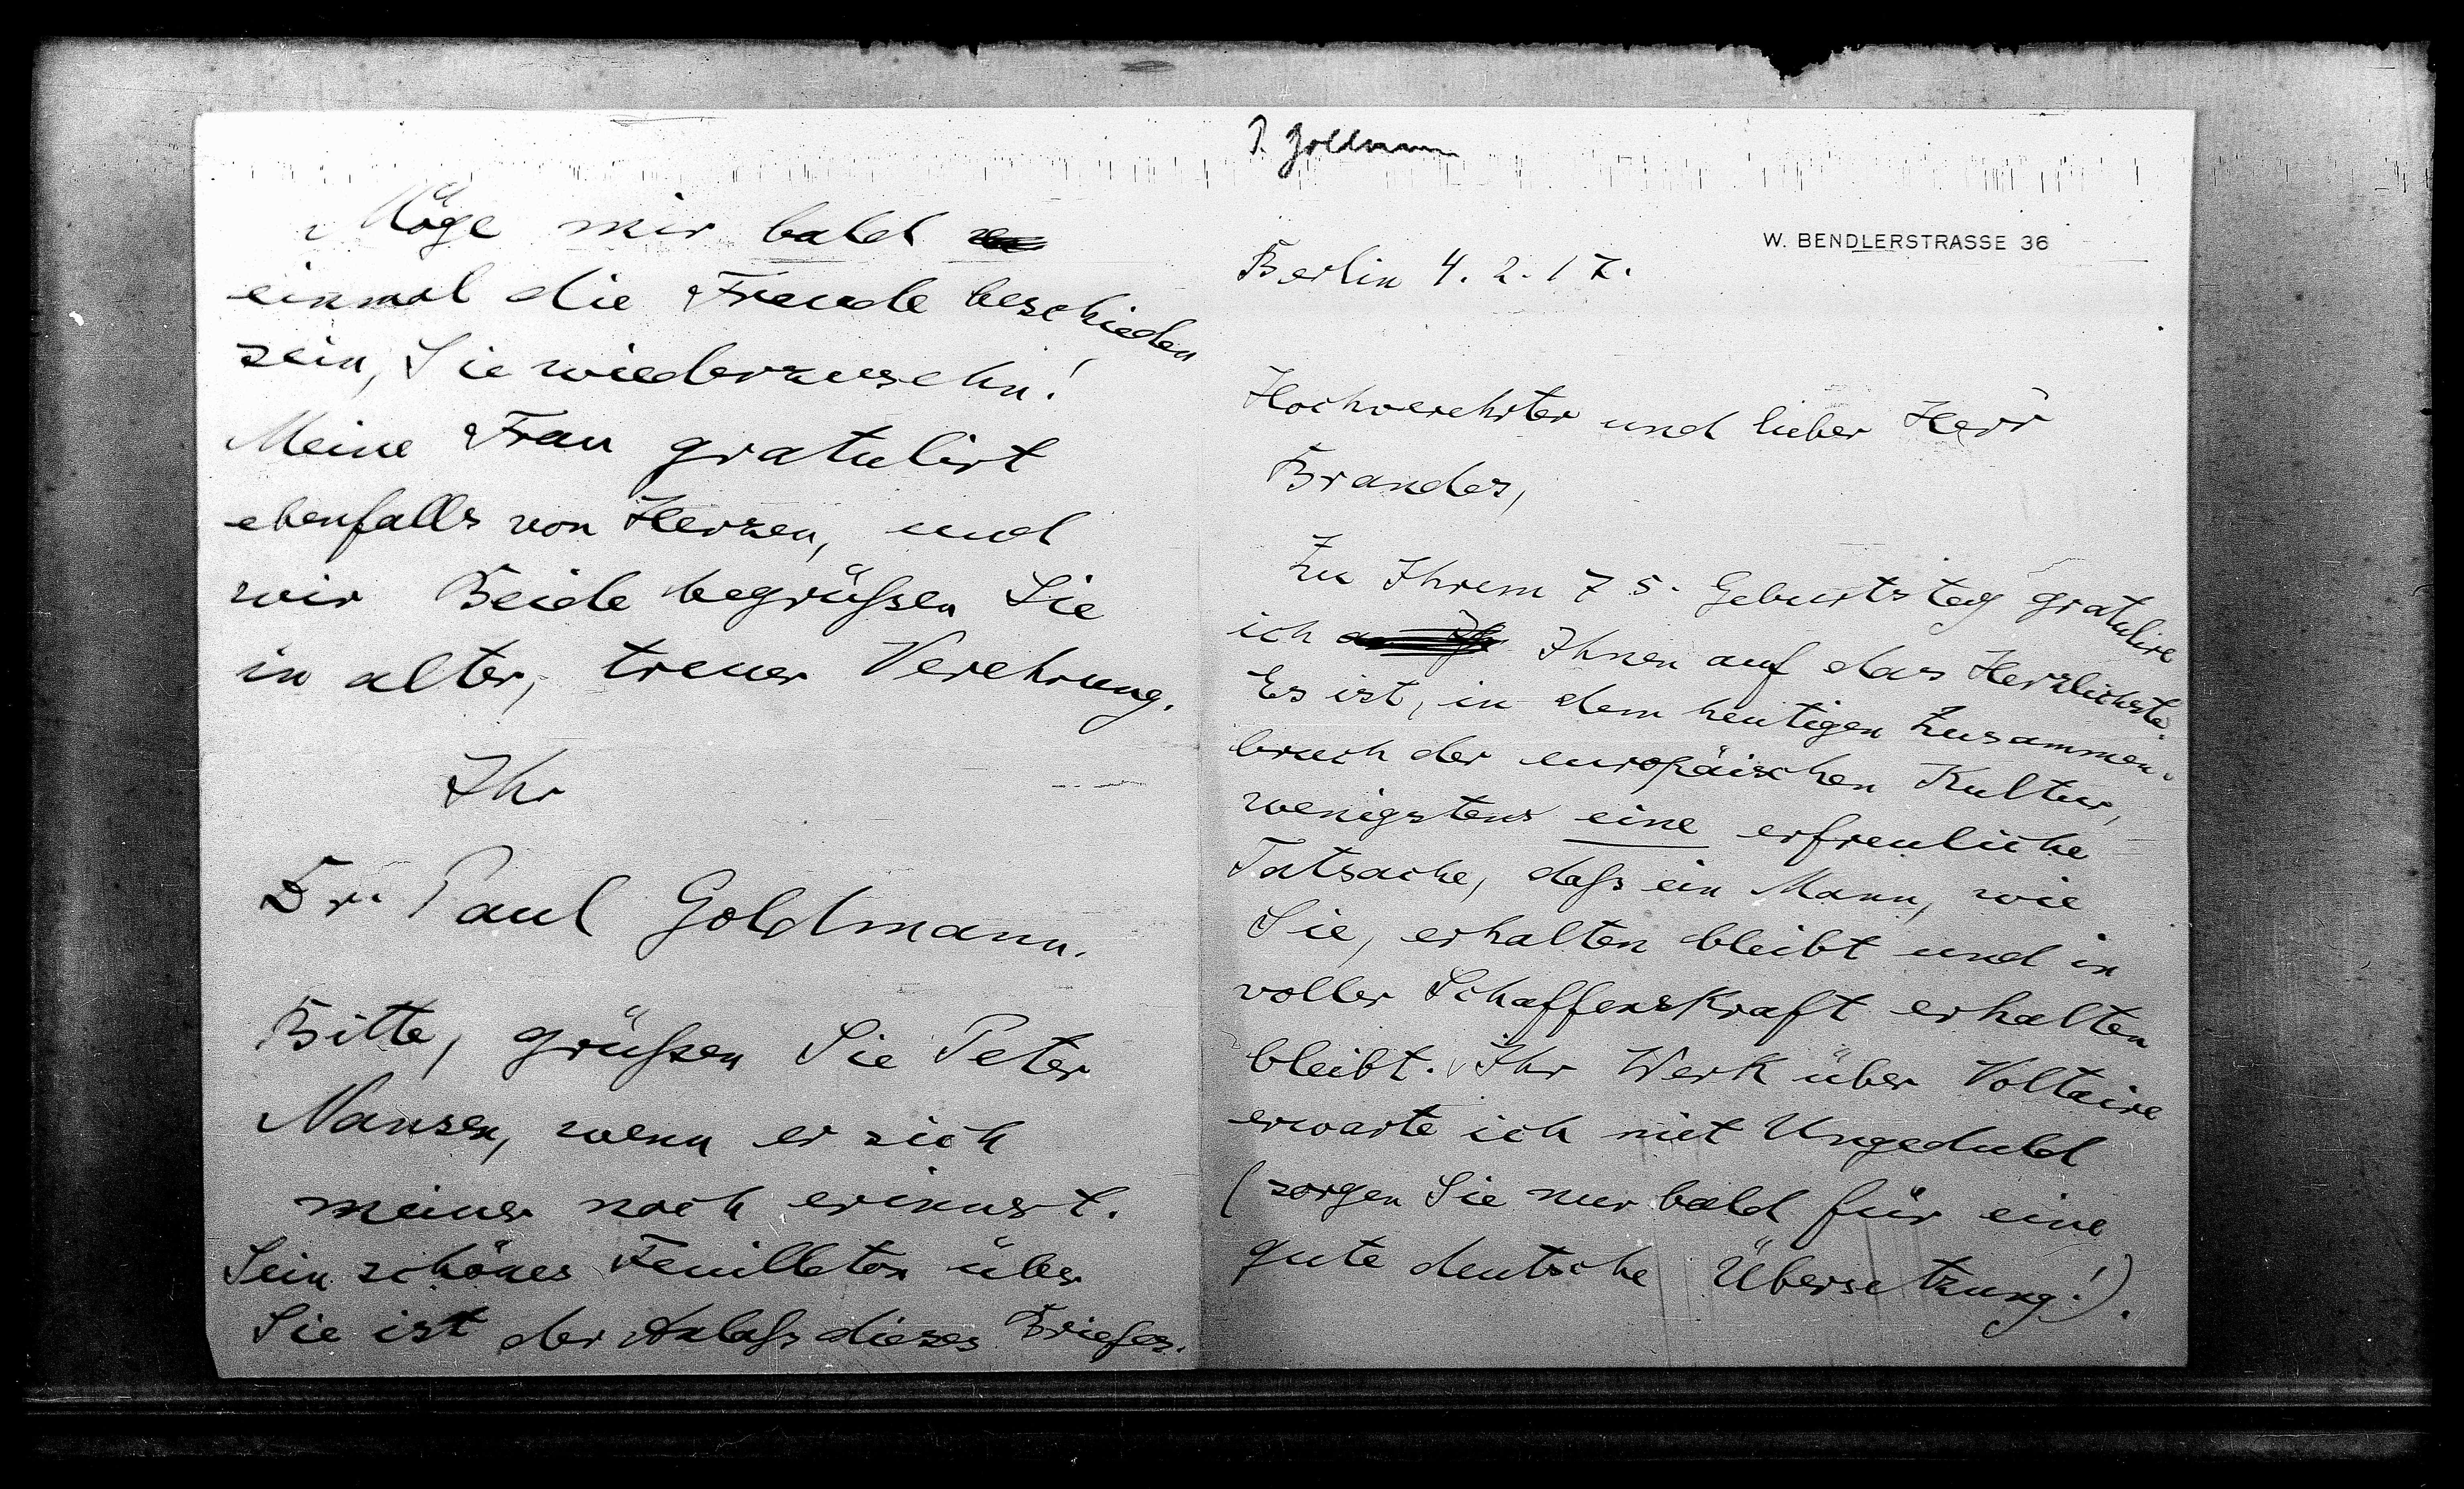 P. Goldmann
W. BENDLERSTRASSE 36
Berlin 4. 2. 17.
Hochverehrter und lieber Herr
Brandes,
Zu Ihrem 75. Geburtstag gratulire
ich Ihnen auf das Herzlichste.
Es ist, in dem heutigen Zusammen-
bruch der europäischen Kultur,
wenigstens eine erfreuliche
Tatsache, daß ein Mann, wie
Sie, erhalten bleibt und in
voller Schaffenskraft erhalten
bleibt. Ihr Werk über Voltaire
erwarte ich mit Ungeduld
(sorgen Sie nur bald für eine
gute deutsche Übersetzung!).
Möge mir bald
einmal die Freude beschieden
sein, Sie wiederzusehn!
Meine Frau gratulirt
ebenfalls von Herzen, und
wir Beide begrüßen Sie
in alter, treuer Verehrung.
Ihr
Dr. Paul Goldmann.
Bitte, grüßen Sie Peter
Nansen, wenn er sich
meiner noch erinnert.
Sein schönes Feuilleton über
Sie ist der Anlaß dieses Briefes.